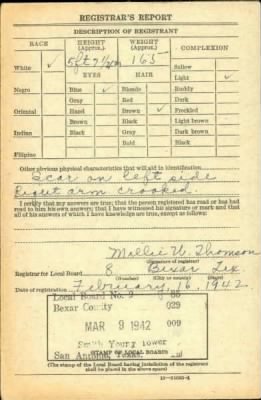 REGISTRAR'S REPORT
DESCRIPTION OF REGISTRANT
RACE HEIGHT (Approx.) WEIGHT (Approx.) COMPLEXION
5ft 7½in 165 Sallow
White ✓ Light ✓
EYES HAIR
Negro Blue ✓ Blonde Ruddy
Gray Red Dark
Oriental Hazel Brown ✓ Freckled
Brown Black Light brown
Indian Black Gray Dark brown
Bald Black
Filipino
Other obvious physical characteristics that will aid in identification
Scar on left side
Right arm crooked.
I certify that my answers are true; that the person registered has read or has had
read to him his own answers; that I have witnessed his signature or mark and that
all of his answers of which I have knowledge are true, except as follows:
Millie W Thomson
(Signature of registrar)
Registrar for Local Board 8 Bexar Tex
(Number) (City or county) (State)
Date of registration February, 16, 1942
Local Board No. 9 86
Bexar County 029
MAR 9 1942 009
Smith Young Tower
San Antonio, Texas
(STAMP OF LOCAL BOARD)
(The stamp of the Local Board having jurisdiction of the registrant
shall be placed in the above space)